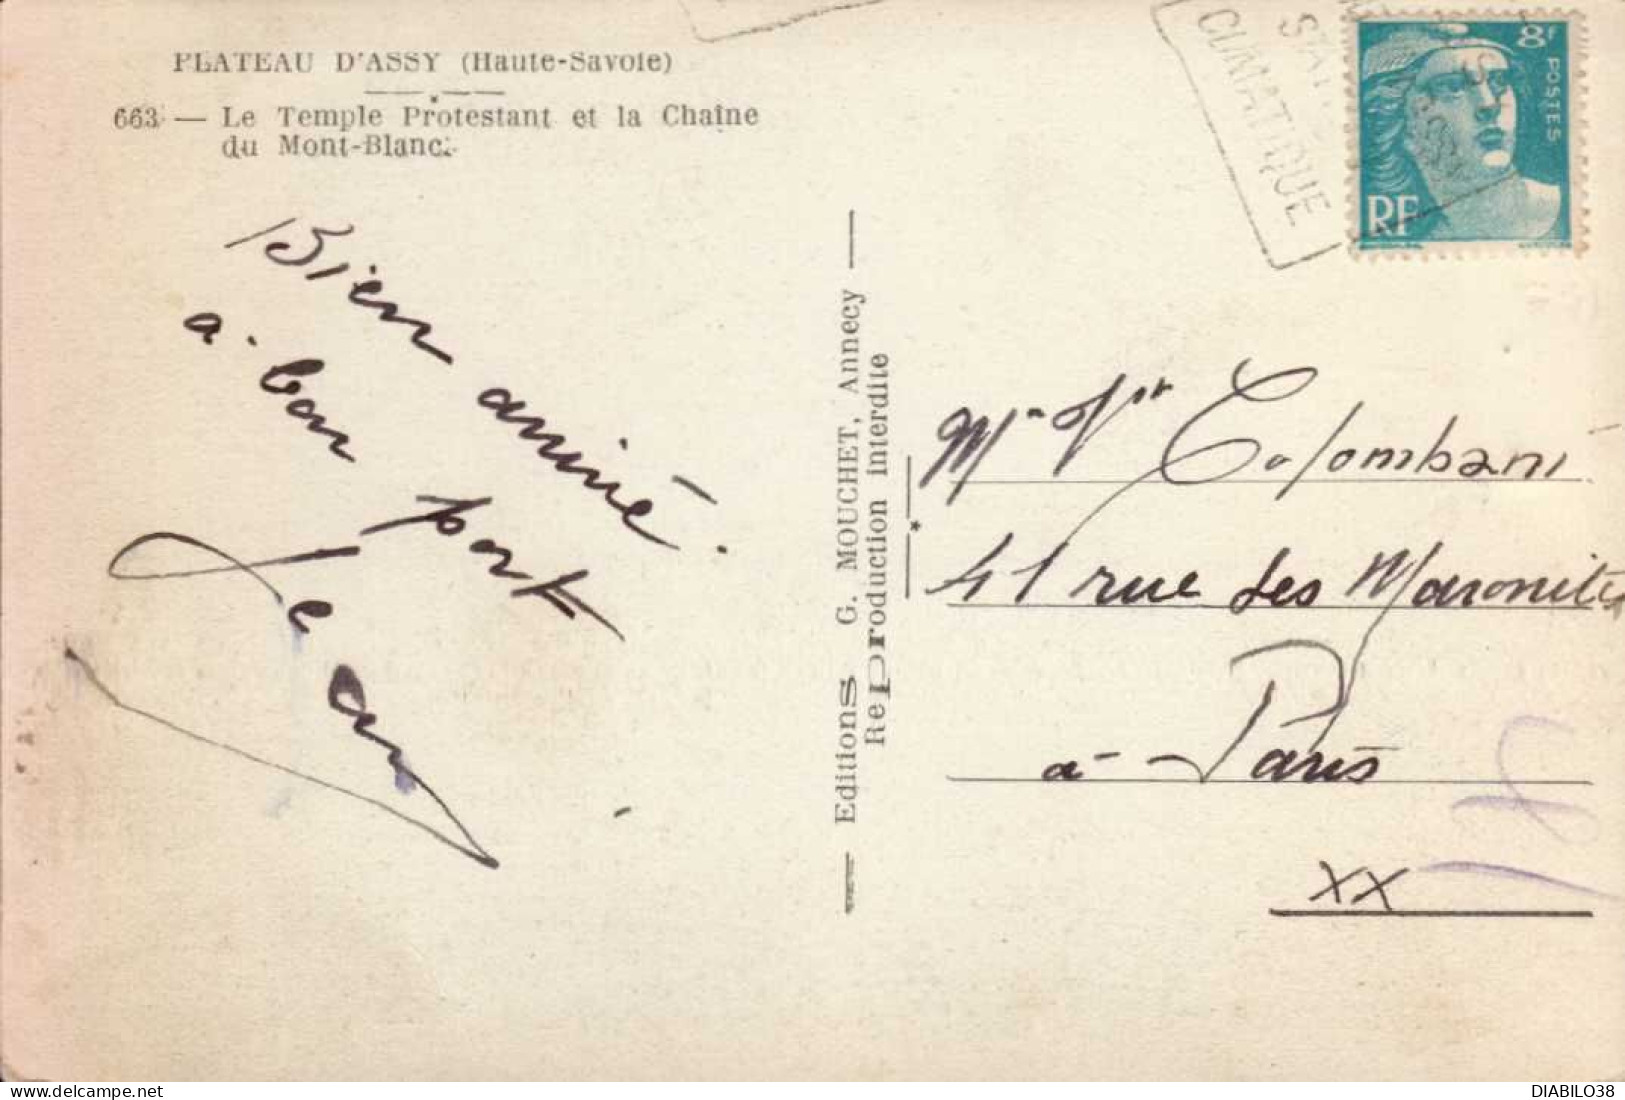 PLATEAU D'ASSY (Haute-Savoie)
663 — Le Temple Protestant et la Chaîne
du Mont-Blanc.
Bien arrivé
à bon port
Jean
Editions G. MOUCHET, Annecy
Reproduction interdite
STAT
CLIMATIQUE
8F
POSTES
RF
Colombani
41 rue des Maronites
à Paris
XX
DIABILO38